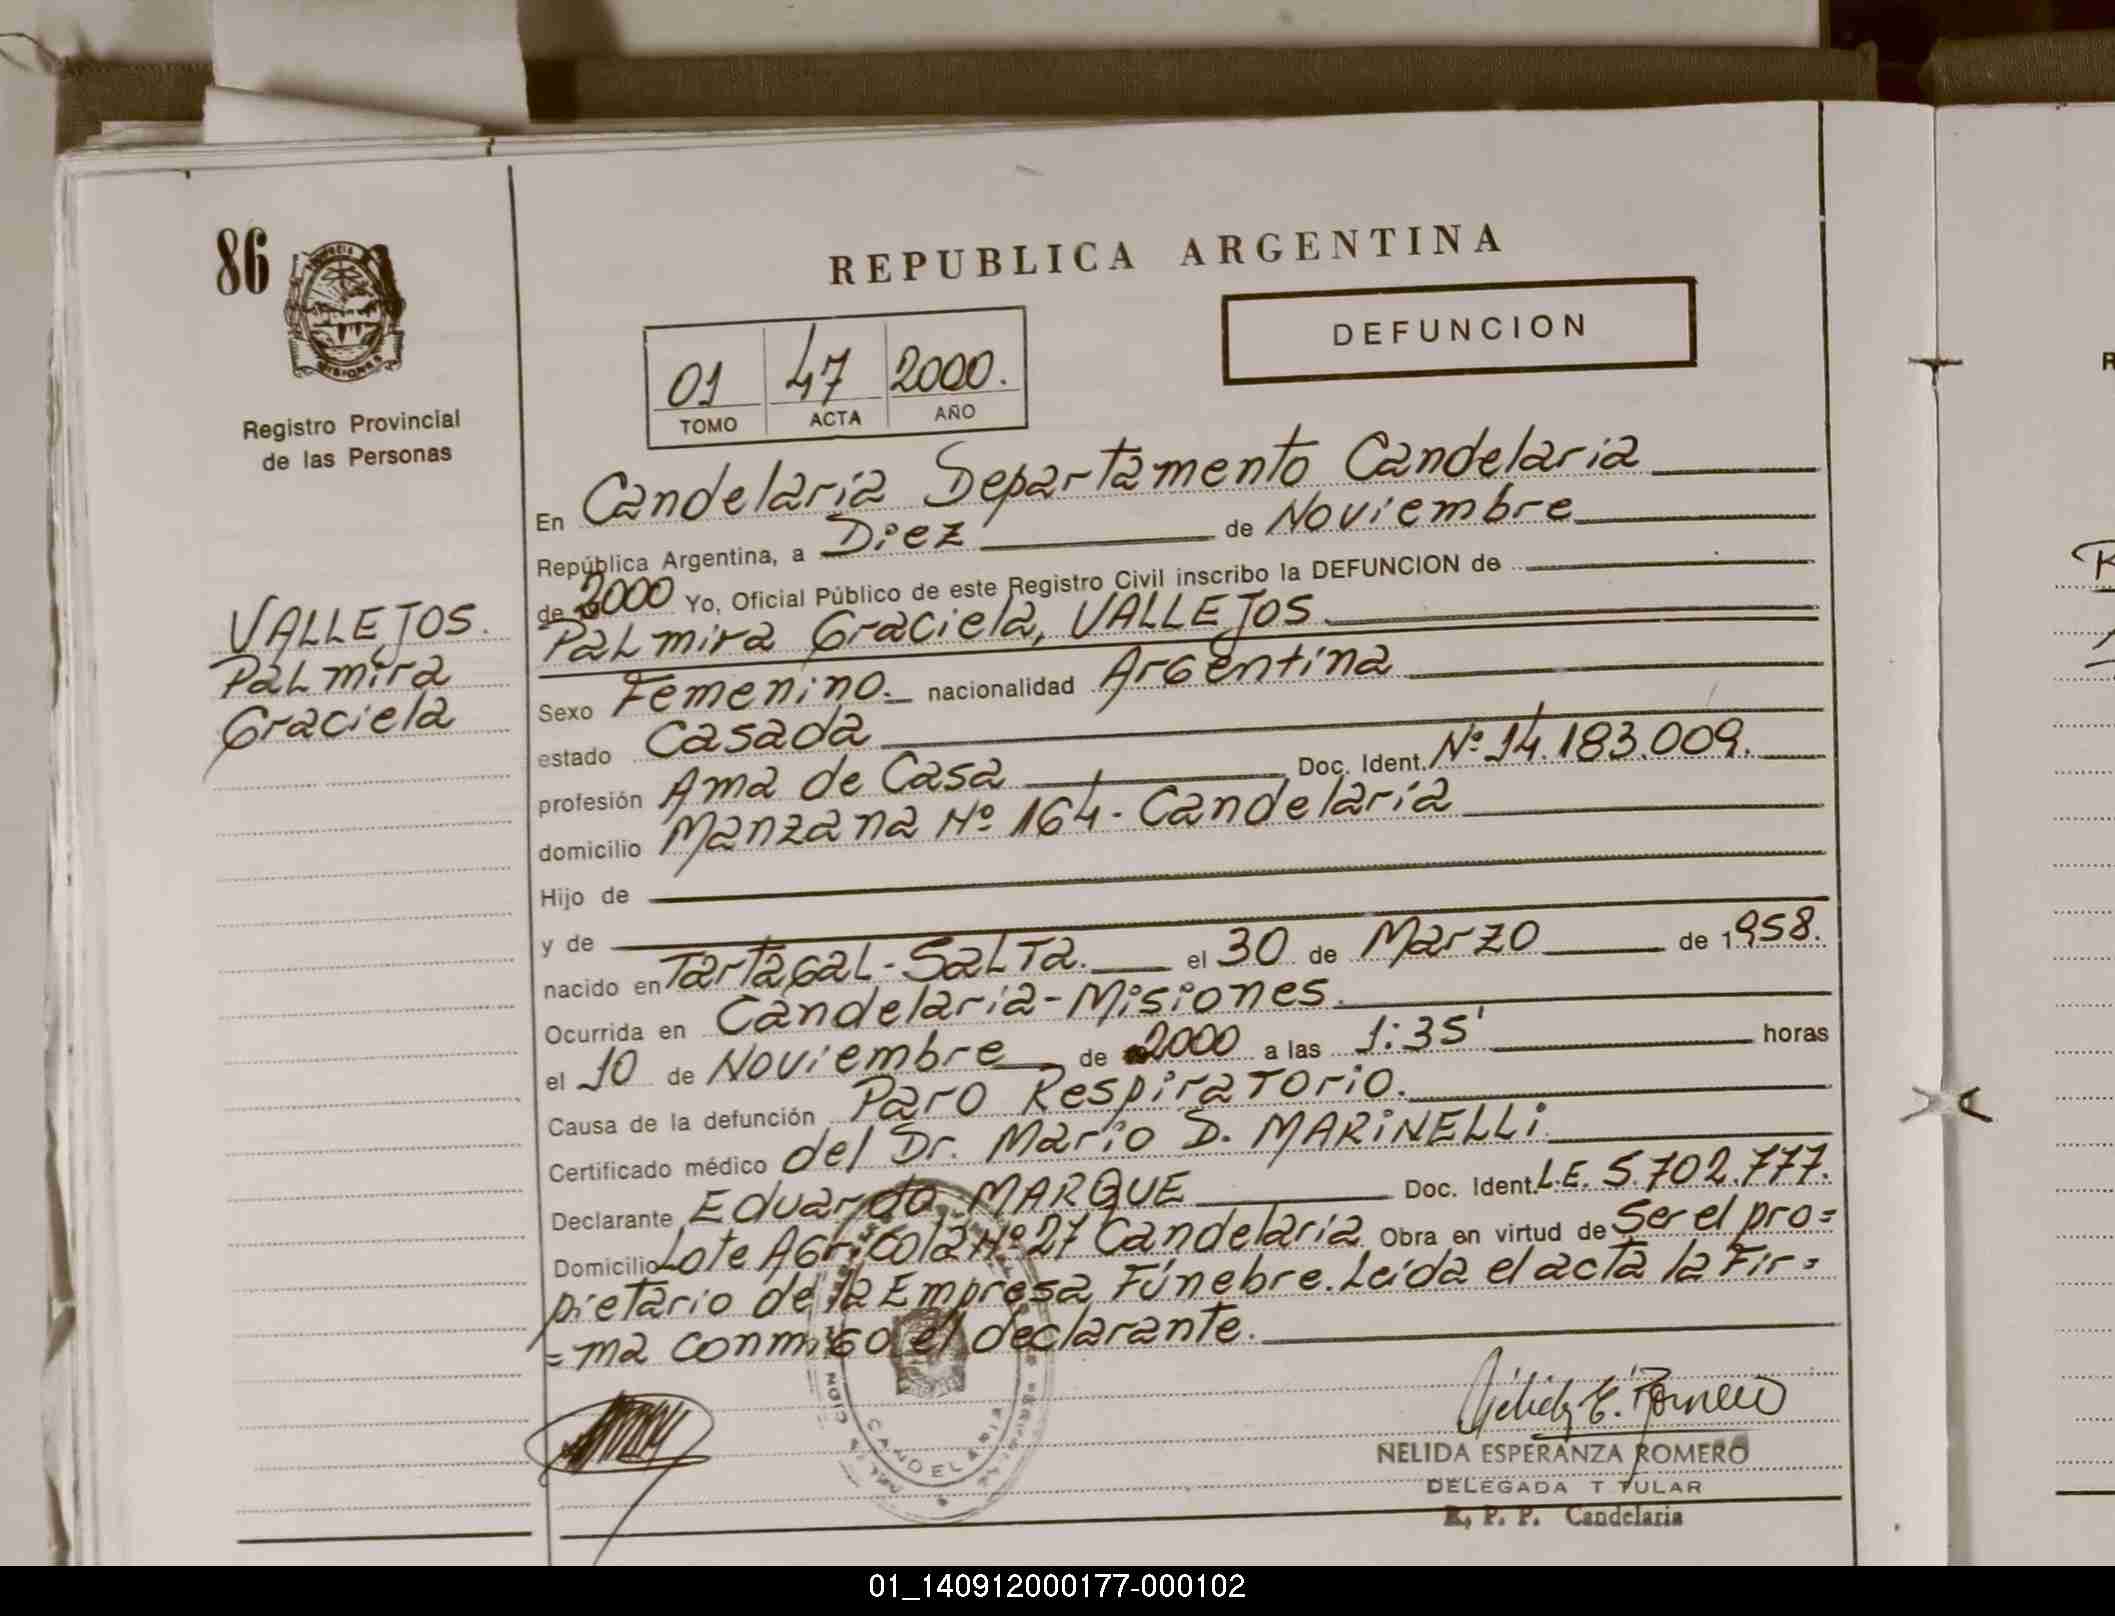 86
REPUBLICA ARGENTINA
DEFUNCION
01 47 2000.
TOMO ACTA AÑO
MISIONES
Registro Provincial
de las Personas
VALLEJOS.
Palmira
Graciela
En Candelaria Departamento Candelaria
República Argentina, a Diez de Noviembre
de 2000 Yo, Oficial Público de este Registro Civil inscribo la DEFUNCION de
Palmira Graciela, VALLEJOS
Sexo Femenino. nacionalidad Argentina
estado Casada
profesión Ama de Casa Doc. Ident. Nº 14.183.009.
domicilio Manzana Nº 164 - Candelaria
Hijo de
y de
nacido en Tartagal - Salta. el 30 de Marzo de 1958.
Ocurrida en Candelaria - Misiones.
el 10 de Noviembre de 2000 a las 1:35' horas
Causa de la defunción Paro Respiratorio.
Certificado médico del Dr. Mario D. MARINELLI
Declarante Eduardo MARQUE Doc. Ident. L.E. 5.702.777.
Domicilio Lote Agricola Nº 27 Candelaria Obra en virtud de Ser el pro=
pietario de la Empresa Fúnebre. Leída el acta la Fir=
=ma conmigo el declarante.
CANDELARIA
Nélida E. Romero
NELIDA ESPERANZA ROMERO
DELEGADA T TULAR
R. P. P. Candelaria
01_140912000177-000102